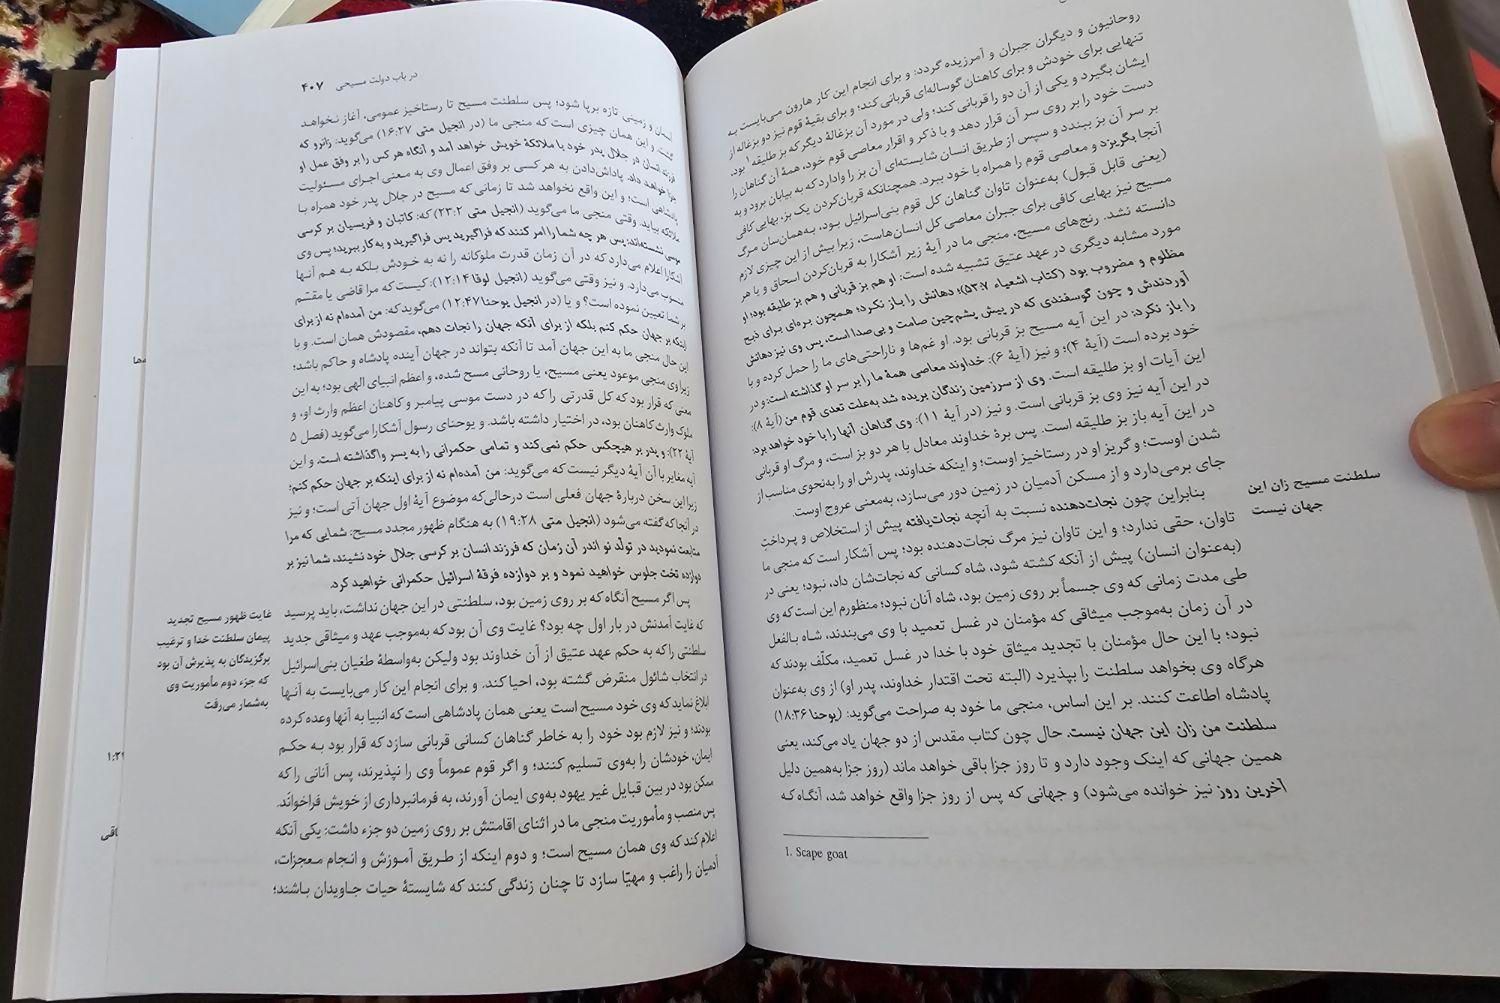 روحانیون و دیگران جبران و آمرزیده گردد: و برای انجام این کار هارون می‌بایست به
تنهایی برای خودش و برای کاهنان گوساله‌ای قربانی کند؛ و برای بقیهٔ قوم نیز دو بزغاله از
ایشان بگیرد و یکی از آن دو را قربانی کند؛ ولی در مورد آن بزغالهٔ دیگر که بز طلیقه۱ بود،
دست خود را بر روی سر آن قرار دهد و با ذکر و اقرار معاصی قوم خود، همهٔ آن گناهان را
بر سر آن بز ببندد و سپس از طریق انسان شایسته‌ای آن بز را وادارد که به بیابان برود و به
آنجا بگریزد و معاصی قوم را همراه با خود ببرد. همچنانکه قربان‌کردن یک بز، بهایی کافی
(یعنی قابل قبول) به‌عنوان تاوان گناهان کل قوم بنی‌اسرائیل بود، به‌همان‌سان مرگ
مسیح نیز بهایی کافی برای جبران معاصی کل انسان‌هاست، زیرا بیش از این چیزی لازم
دانسته نشد. رنج‌های مسیح، منجی ما در آیهٔ زیر آشکارا به قربان‌کردن اسحاق و یا هر
مورد مشابه دیگری در عهد عتیق تشبیه شده است: او هم بز قربانی و هم بز طلیقه بود؛ او
مظلوم و مضروب بود (کتاب اشعیاء ۵۳:۷)؛ دهانش را باز نکرد؛ همچون بره‌ای برای ذبح
آوردندش و چون گوسفندی که در پیش پشم‌چین صامت و بی‌صدا است، پس وی نیز دهانش
را باز نکرد: در این آیه مسیح بز قربانی بود. او غم‌ها و ناراحتی‌های ما را حمل کرده و با
خود برده است (آیهٔ ۴)؛ و نیز (آیهٔ ۶): خداوند معاصی همهٔ ما را بر سر او گذاشته است: و در
این آیات او بز طلیقه است. وی از سرزمین زندگان بریده شد به‌علت تعدی قوم من (آیهٔ ۸):
در این آیه نیز وی بز قربانی است. و نیز (در آیهٔ ۱۱): وی گناهان آنها را با خود خواهد برد:
در این آیه باز بز طلیقه است. پس برهٔ خداوند معادل با هر دو بز است، و مرگ او قربانی
شدن اوست؛ و گریز او در رستاخیز اوست؛ و اینکه خداوند، پدرش او را به‌نحوی مناسب از
جای برمی‌دارد و از مسکن آدمیان در زمین دور می‌سازد، به‌معنی عروج اوست.
سلطنت مسیح زان این
جهان نیست
بنابراین چون نجات‌دهنده نسبت به آنچه نجات‌یافته پیش از استخلاص و پرداختِ
تاوان، حقی ندارد؛ و این تاوان نیز مرگ نجات‌دهنده بود؛ پس آشکار است که منجی ما
(به‌عنوان انسان) پیش از آنکه کشته شود، شاه کسانی که نجات‌شان داد، نبود؛ یعنی در
طی مدت زمانی که وی جسماً بر روی زمین بود، شاه آنان نبود؛ منظورم این است که وی
در آن زمان به‌موجب میثاقی که مؤمنان در غسل تعمید با وی می‌بندند، شاه بالفعل
نبود؛ با این حال مؤمنان با تجدید میثاق خود با خدا در غسل تعمید، مکلّف بودند که
هرگاه وی بخواهد سلطنت را بپذیرد (البته تحت اقتدار خداوند، پدر او) از وی به‌عنوان
پادشاه اطاعت کنند. بر این اساس، منجی ما خود به صراحت می‌گوید: (یوحنا ۱۸:۳۶)
سلطنت من زان این جهان نیست. حال چون کتاب مقدس از دو جهان یاد می‌کند، یعنی
همین جهانی که اینک وجود دارد و تا روز جزا باقی خواهد ماند (روز جزا به‌همین دلیل
آخرین روز نیز خوانده می‌شود) و جهانی که پس از روز جزا واقع خواهد شد، آنگاه که
1. Scape goat
در باب دولت مسیحی ۴۰۷
آسمان و زمینی تازه برپا شود؛ پس سلطنت مسیح تا رستاخیز عمومی، آغاز نخواهد
گشت. و این همان چیزی است که منجی ما (در انجیل متی ۱۶:۲۷) می‌گوید: زانرو که
فرزند انسان در جلال پدر خود با ملائکهٔ خویش خواهد آمد و آنگاه هر کس را بر وفق عمل او
جزا خواهد داد. پاداش‌دادن به هر کسی بر وفق اعمال وی به معنی اجرای مسئولیت
پادشاهی است؛ و این واقع نخواهد شد تا زمانی که مسیح در جلال پدر خود همراه با
ملائکه بیاید. وقتی منجی ما می‌گوید (انجیل متی ۲۳:۲) که: کاتبان و فریسیان بر کرسی
موسی نشسته‌اند؛ پس هر چه شما را امر کنند که فراگیرید پس فراگیرید و به کار ببرید؛ پس وی
آشکارا اعلام می‌دارد که در آن زمان قدرت ملوکانه را نه به خودش بلکه به هم آنها
منسوب می‌دارد. و نیز وقتی می‌گوید (انجیل لوقا ۱۲:۱۴): کیست که مرا قاضی یا مقسّم
بر شما تعیین نموده است؟ و یا (در انجیل یوحنا ۱۲:۴۷) می‌گوید که: من آمده‌ام نه از برای
اینکه بر جهان حکم کنم بلکه از برای آنکه جهان را نجات دهم، مقصودش همان است. و با
این حال منجی ما به این جهان آمد تا آنکه بتواند در جهان آینده پادشاه و حاکم باشد؛
زیرا وی منجی موعود یعنی مسیح، یا روحانی مسح شده، و اعظم انبیای الهی بود؛ به این
معنی که قرار بود که کل قدرتی را که در دست موسی پیامبر و کاهنان اعظم وارث او، و
ملوک وارث کاهنان بود، در اختیار داشته باشد. و یوحنای رسول آشکارا می‌گوید (فصل ۵
آیهٔ ۲۲): و پدر بر هیچکس حکم نمی‌کند و تمامی حکمرانی را به پسر واگذاشته است. و این
آیه مغایر با آن آیهٔ دیگر نیست که می‌گوید: من آمده‌ام نه از برای اینکه بر جهان حکم کنم؛
زیرا این سخن دربارهٔ جهان فعلی است درحالی‌که موضوع آیهٔ اول جهان آتی است؛ و نیز
در آنجا که گفته می‌شود (انجیل متی ۱۹:۲۸) به هنگام ظهور مجدد مسیح: شمایی که مرا
متابعت نمودید در تولّد نو اندر آن زمان که فرزند انسان بر کرسی جلال خود نشیند، شما نیز بر
دوازده تخت جلوس خواهید نمود و بر دوازده فرقهٔ اسرائیل حکمرانی خواهید کرد.
غایت ظهور مسیح تجدید
پیمان سلطنت خدا و ترغیب
برگزیدگان به پذیرش آن بود
که جزء دوم مأموریت وی
به‌شمار می‌رفت
پس اگر مسیح آنگاه که بر روی زمین بود، سلطنتی در این جهان نداشت، باید پرسید
که غایت آمدنش در بار اول چه بود؟ غایت وی آن بود که به‌موجب عهد و میثاقی جدید
سلطنتی را که به حکم عهد عتیق از آن خداوند بود ولیکن به‌واسطهٔ طغیان بنی‌اسرائیل
در انتخاب شائول منقرض گشته بود، احیا کند. و برای انجام این کار می‌بایست به آنها
ابلاغ نماید که وی خود مسیح است یعنی همان پادشاهی است که انبیا به آنها وعده کرده
بودند؛ و نیز لازم بود خود را به خاطر گناهان کسانی قربانی سازد که قرار بود به حکم
ایمان، خودشان را به‌وی تسلیم کنند؛ و اگر قوم عموماً وی را نپذیرند، پس آنانی را که
ممکن بود در بین قبایل غیر یهود به‌وی ایمان آورند، به فرمانبرداری از خویش فراخوانَد.
پس منصب و مأموریت منجی ما در اثنای اقامتش بر روی زمین دو جزء داشت: یکی آنکه
اعلام کند که وی همان مسیح است؛ و دوم اینکه از طریق آموزش و انجام معجزات،
آدمیان را راغب و مهیّا سازد تا چنان زندگی کنند که شایستهٔ حیات جاویدان باشند؛